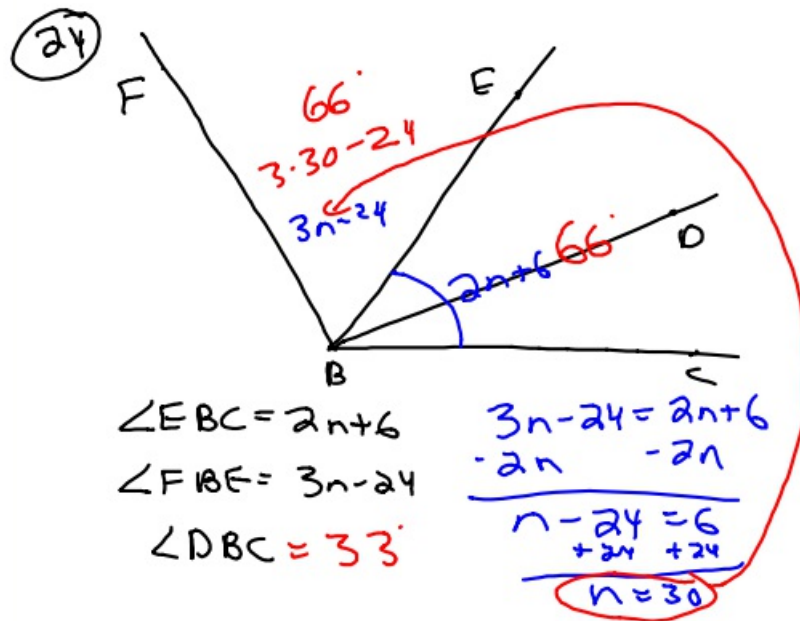 24
F
E
66°
3·30-24
3n-24
D
2n+6 66°
B
C
∠EBC = 2n+6
∠FBE = 3n-24
∠DBC = 33°
3n-24 = 2n+6
-2n -2n
n - 24 = 6
+24 +24
n = 30